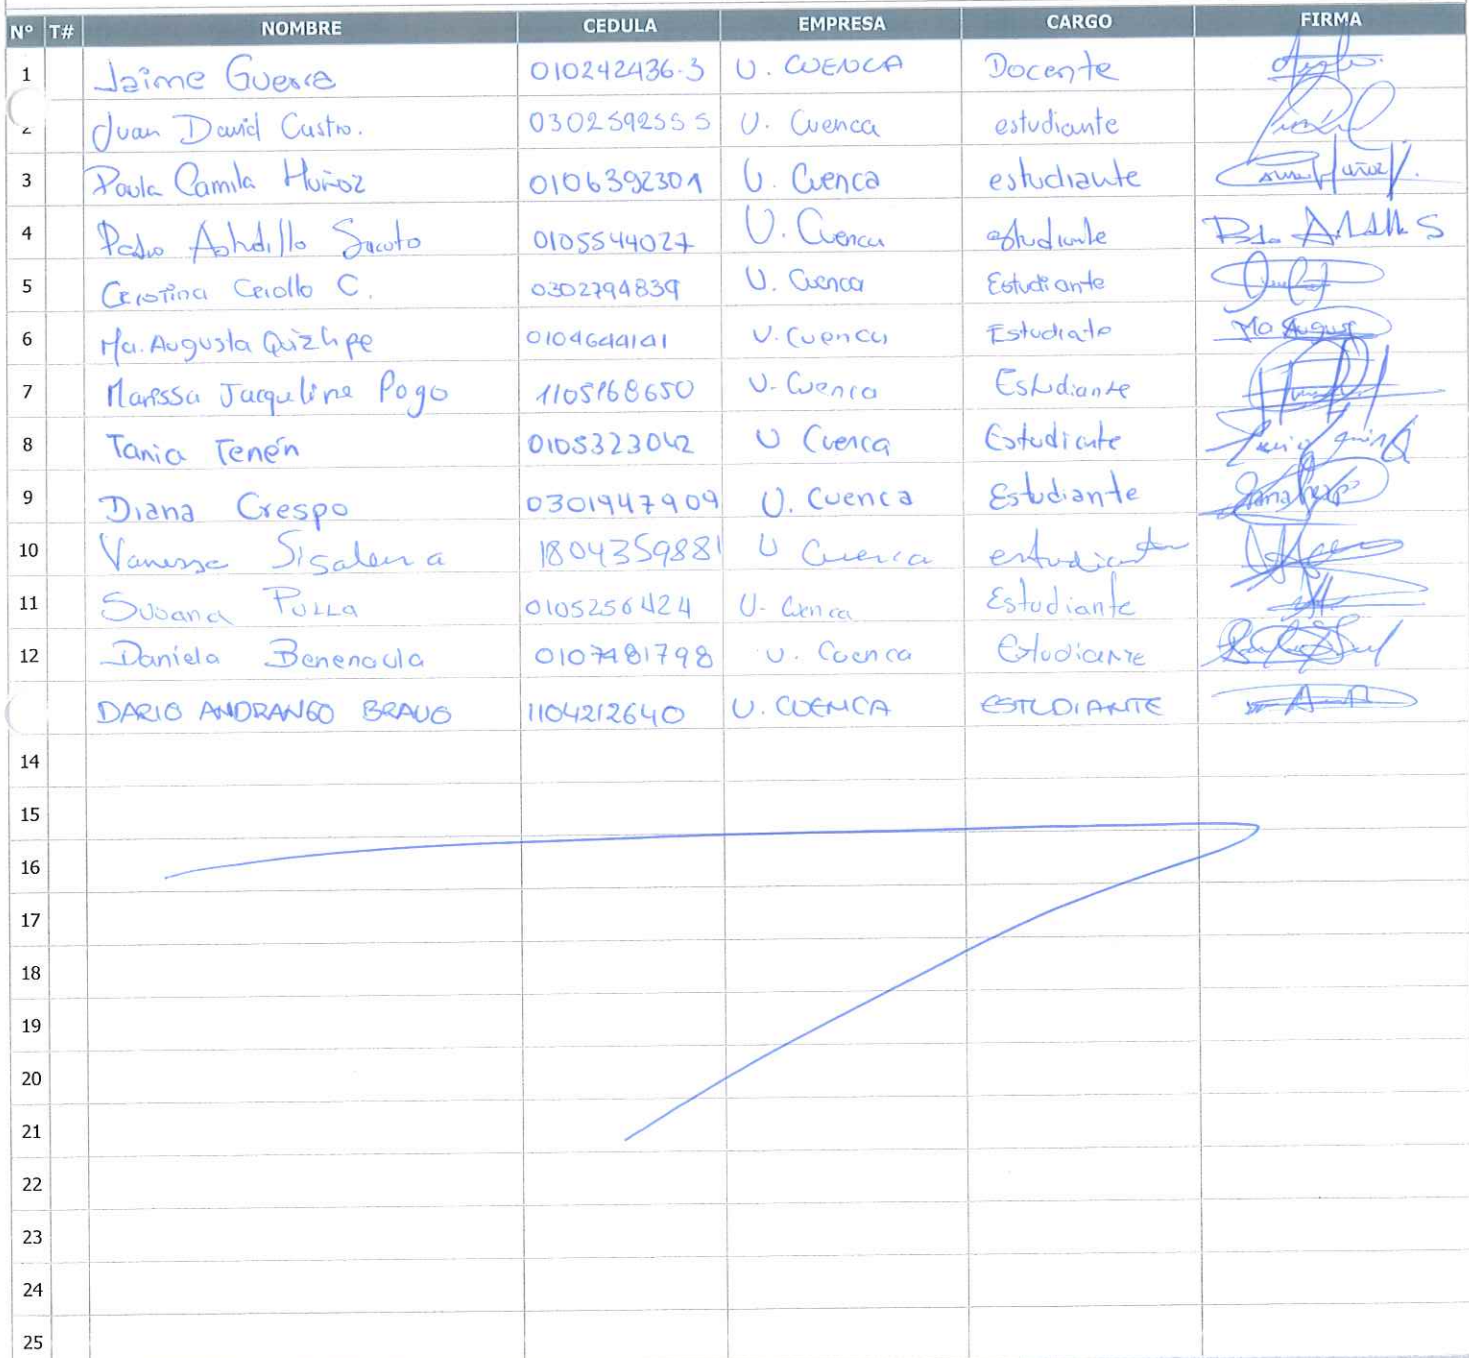 N° T# NOMBRE CEDULA EMPRESA CARGO FIRMA
1 Jaime Guerra 010242436-3 U. CUENCA Docente
2 Juan David Castro. 0302592555 U. Cuenca estudiante
3 Paula Camila Muñoz 0106392301 U. Cuenca estudiante
4 Pedro Astudillo Sacoto 0105544027 U. Cuenca estudiante
5 Cristina Criollo C. 0302794839 U. Cuenca Estudiante
6 Ma. Augusta Quizhpe U. Cuenca Estudiate Ma August
7 Marissa Jacqueline Pogo 1105168650 U. Cuenca Estudiante
8 Tania Tenén 0105323042 U Cuenca Estudiante
9 Diana Crespo 0301947909 U. Cuenca Estudiante
10 Vanessa 1804359881 U Cuenca estudiante
11 Susana Pulla 0105256424 U. Cuenca Estudiante
12 Daniela Benenaula 0107481798 U. Cuenca Estudiante
DARIO ANDRANGO BRAVO 1104212640 U. CUENCA ESTUDIANTE
14
15
16
17
18
19
20
21
22
23
24
25